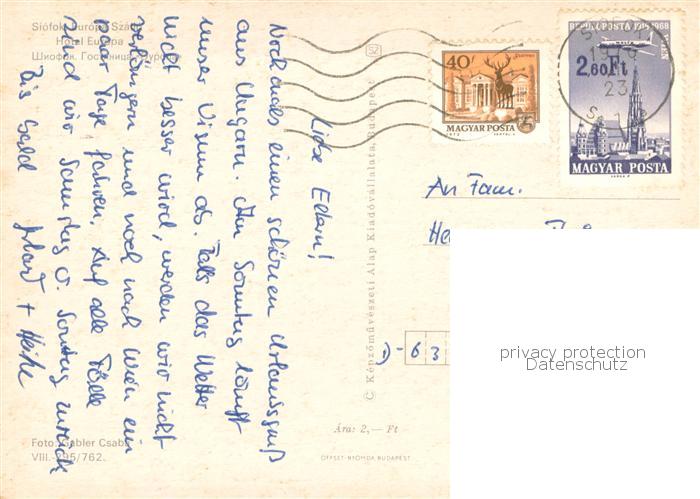 Siófok Európa Szálló
Hotel Europa
Шиофок. Гостиница
Liebe Eltern!
Noch einen schönen Urlaubsgruß
aus Ungarn. Am Sonntag läuft
unser Visum ab. Falls das Wetter
nicht besser wird, werden wir nicht
verlängern und noch nach Wien ein
paar Tage fahren. Auf alle Fälle
sind wir Samstag o. Sonntag zurück
Bis bald
+ Heike
Foto: Gabler Csaba
VIII.-295/762.
© Képzőművészeti Alap Kiadóvállalata, Budapest
SZ
Ára: 2,— Ft
OFFSET-NYOMDA BUDAPEST
40f
MAGYAR POSTA
REPÜLŐPOSTA 1918 1968
2,60 Ft
MAGYAR POSTA
23
An Fam.
D-63
privacy protection
Datenschutz